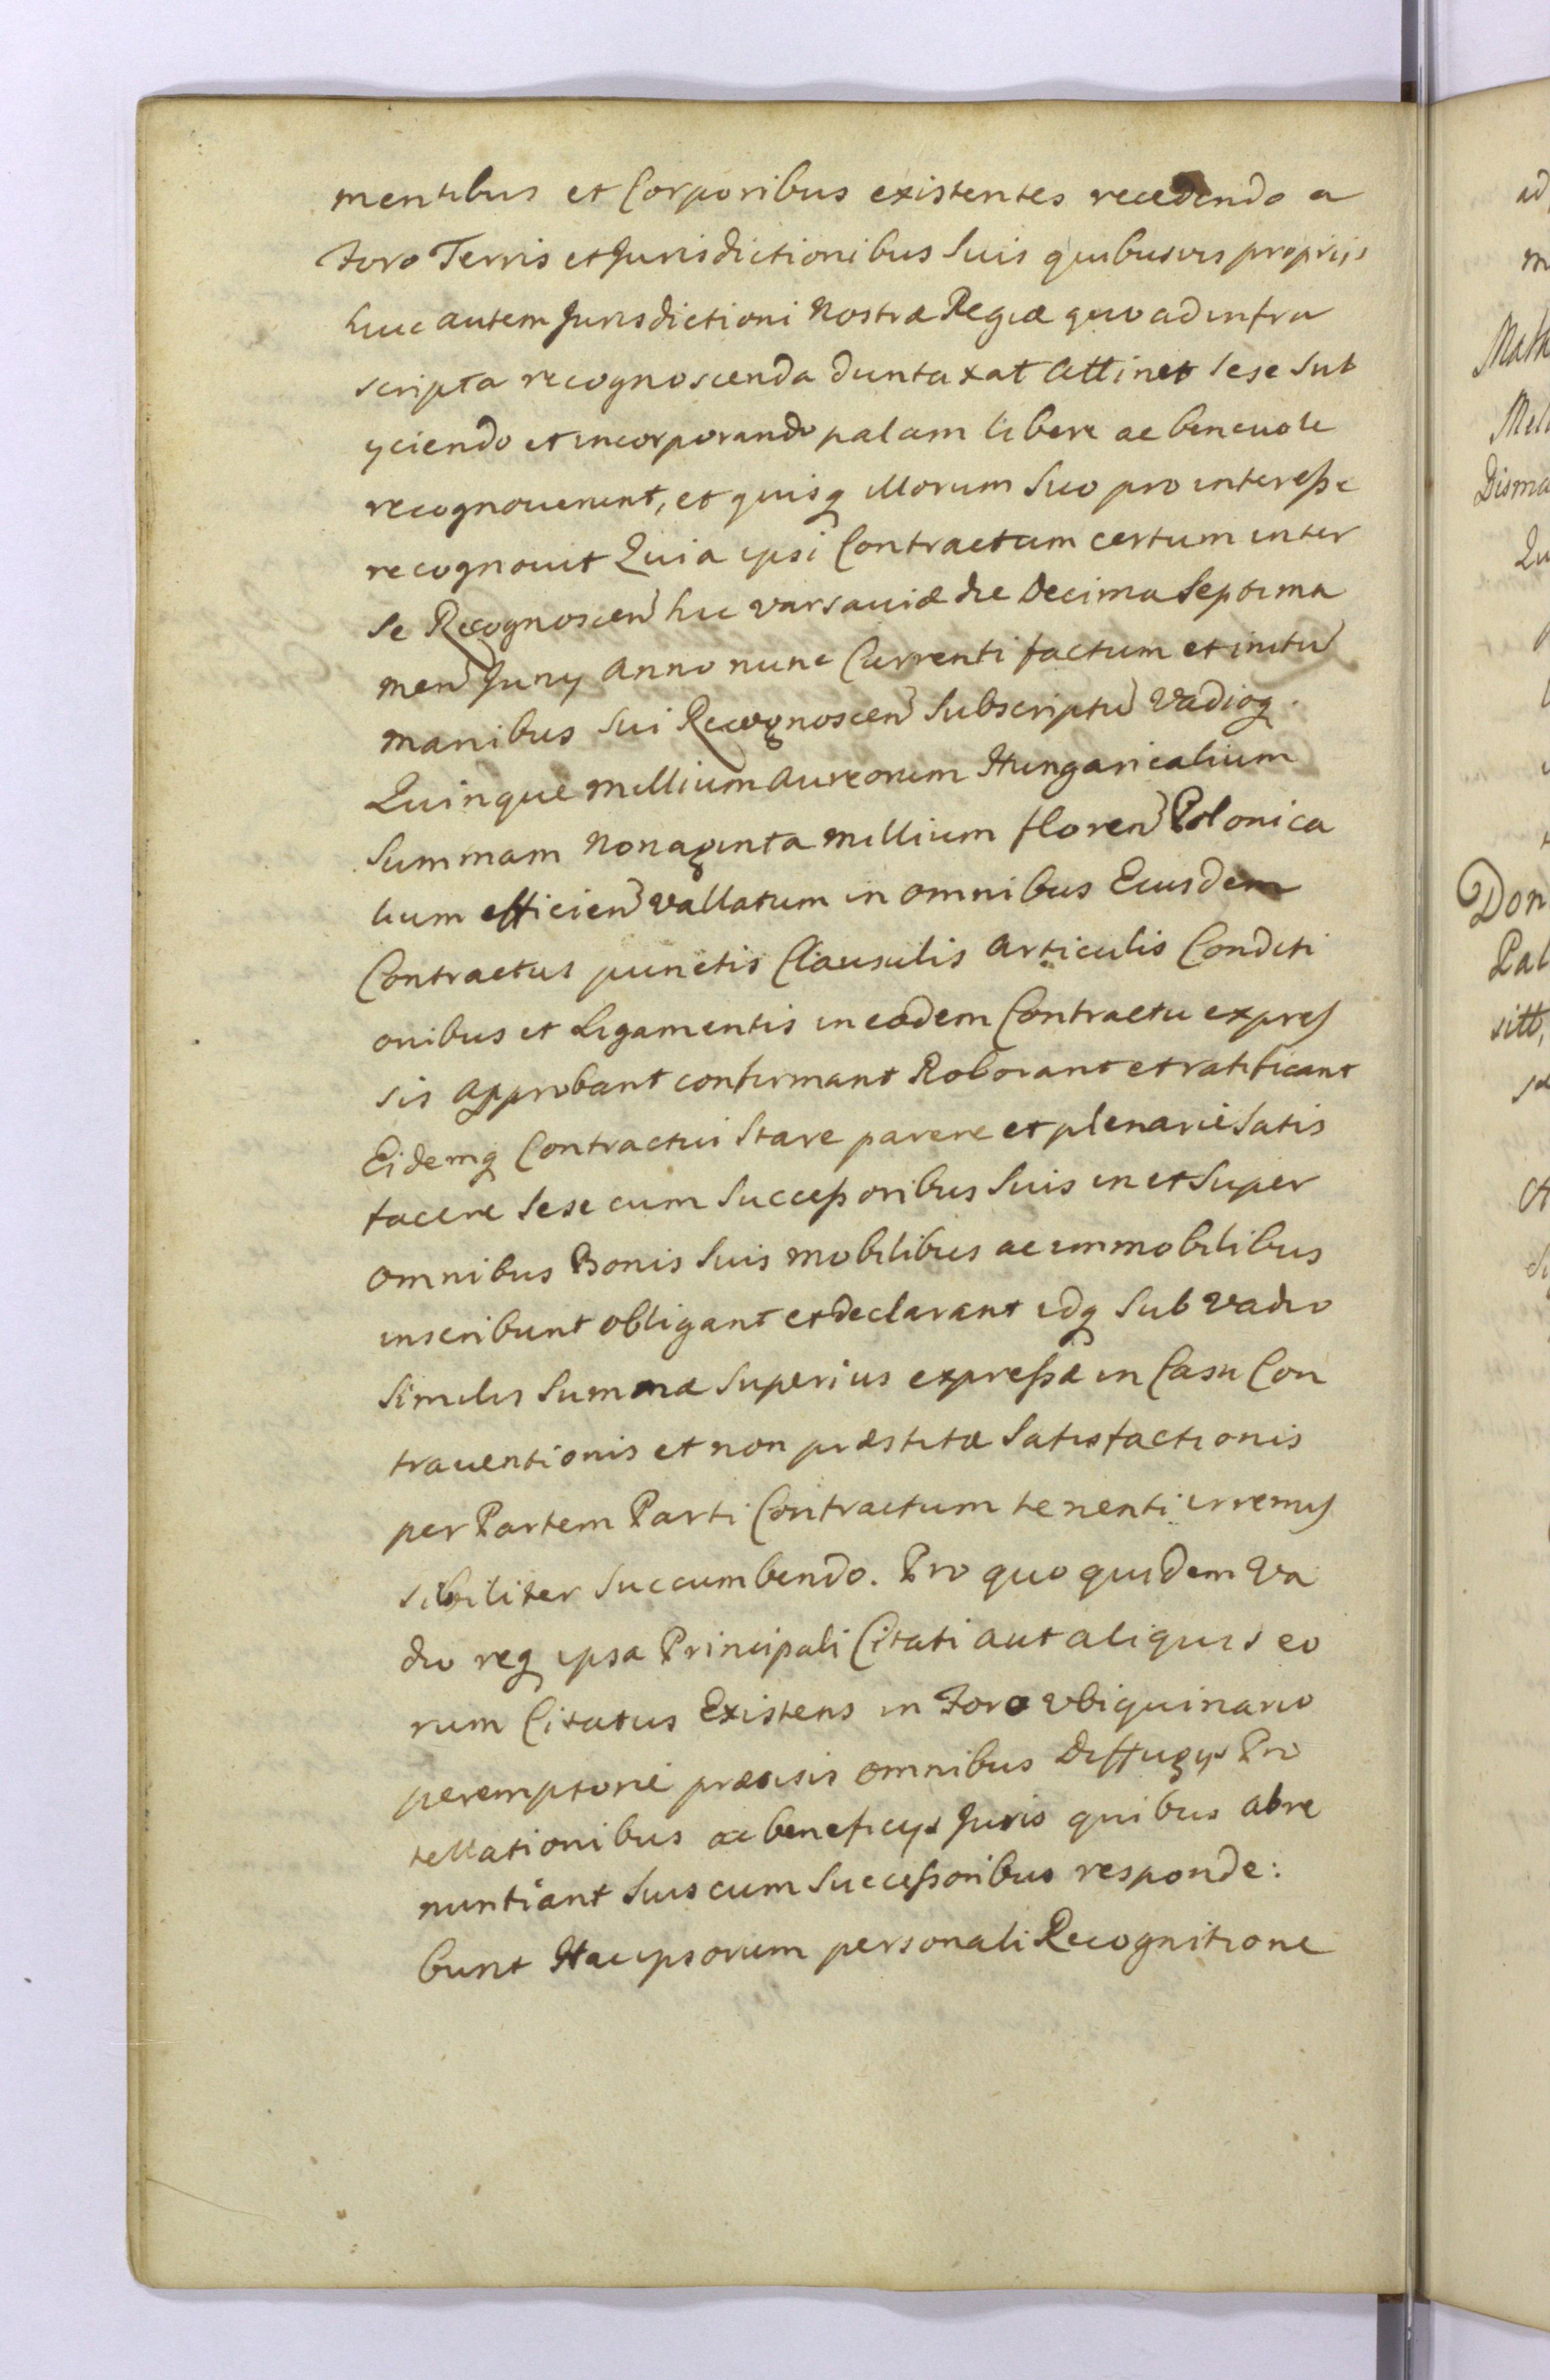 mentibus et Corporibus existentes recedendo a
Foro Terris et Jurisdictionibus suis quibusvis proprijs
huic autem Jurisdictioni Nostræ Regiæ quoad infra
scripta recognoscenda duntaxat attinet sese sub
yciendo et incorporando palam libere ac beneuole
recognouerunt, et quisq illorum suo pro interesse
recognouit Quia ipsi Contractum certum inter
se Recognoscen hic Varsauiæ die Decima Septima
men Juny Anno nunc Currenti factum et initu
manibus sui Recognoscen subscriptu Vadioq
Quinque Millium Aureorum Hungaricalium
Summam Nonaginta Millium floren Polonica
lium efficien vallatum in omnibus Eiusdem
Contractus punctis Clausulis Articulis Conditi
onibus et Ligamentis in eodem Contractu expres
sis Approbant confirmant Roborant et ratificant
Eidemq Contractui Stare parere et plenarie satis
facere sese cum Successoribus suis in et super
omnibus Bonis suis mobilibus ac immobilibus
inscribunt obligant et declarant idq sub vadio
similis summæ superius expressæ in Casu Con
trauentionis et non præstitæ satisfactionis
per Partem Parti Contractum tenenti irremis
sibiliter succumbendo. Pro quo quidem Va
dio req ipsa Principali Citati aut aliquis eo
rum Citatus Existens in Foro Vbiquinario
peremptorie præcisis omnibus Diffugys Pro
tellationibus ac beneficys Juris quibus abre
nuntiant suis cum Successoribus responde:
bunt Hac ipsorum personali Recognitione
ad
m
Math
Disma
Qu
Don
Pal
sitt,